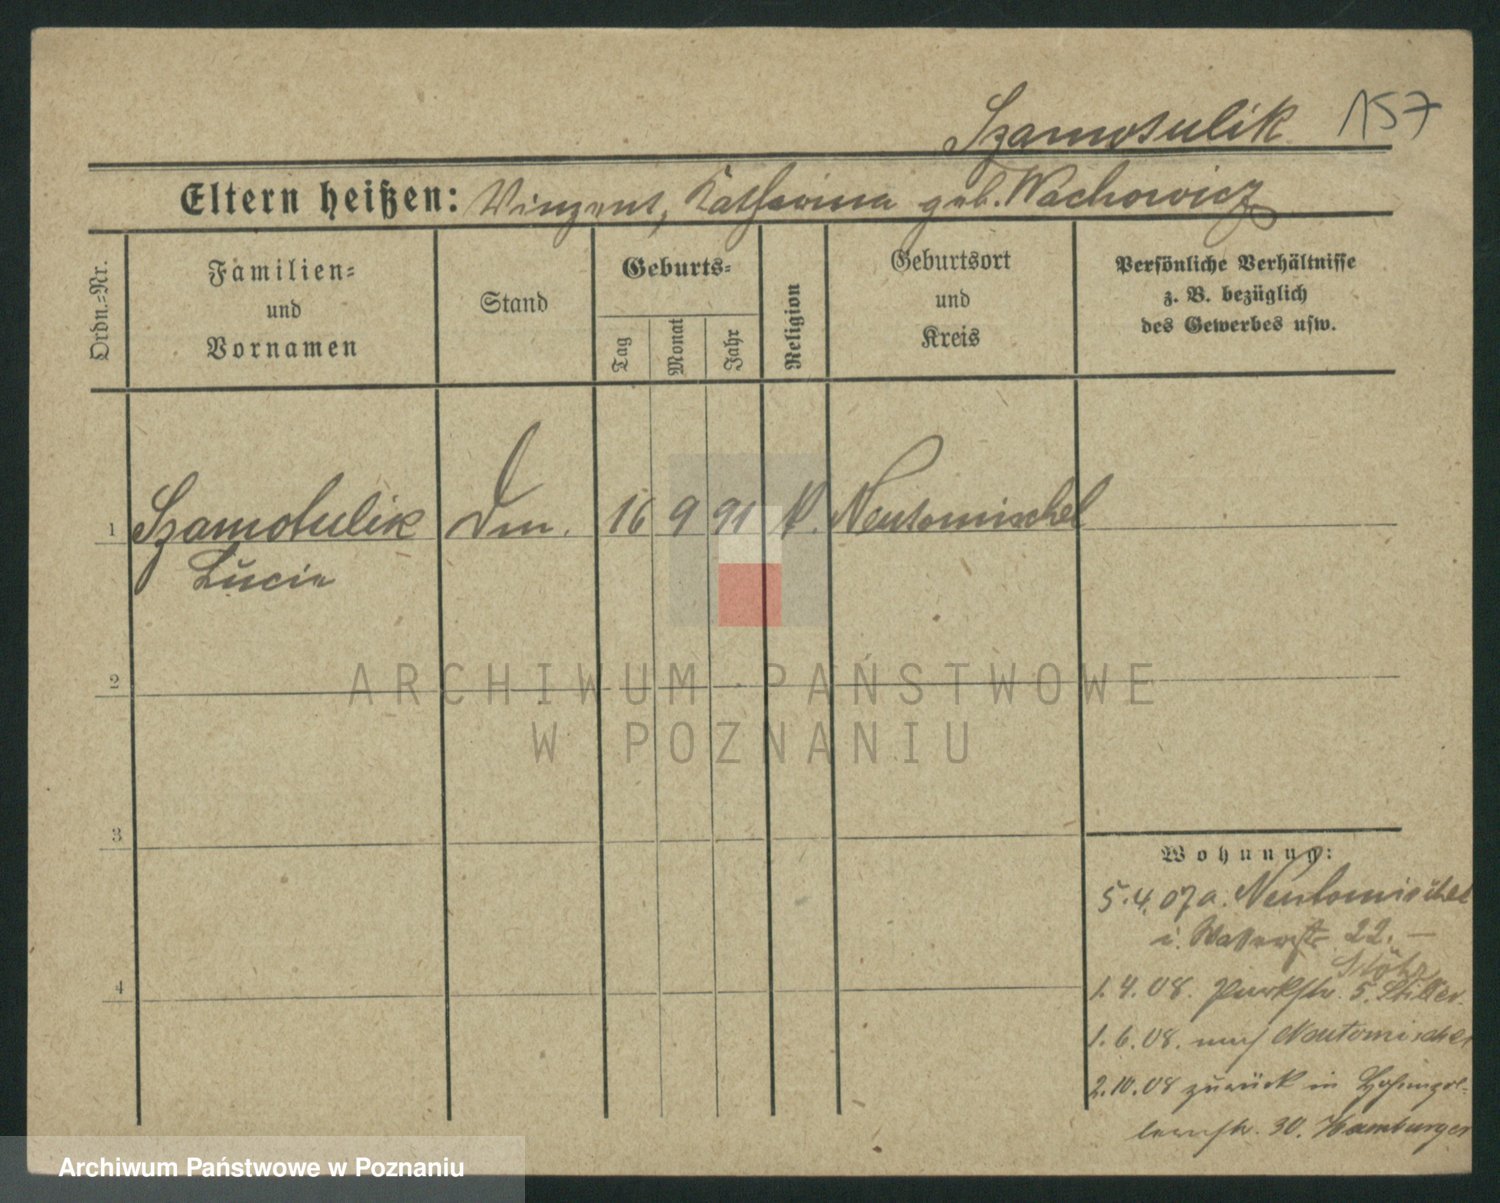 Szamotulik 157
Eltern heißen: Vinzent, Katharina geb. Wachowicz
Ordn.=Nr.
Familien=
und
Vornamen
Stand
Geburts=
Tag
Monat
Jahr
Religion
Geburtsort
und
Kreis
Persönliche Verhältnisse
z. B. bezüglich
des Gewerbes usw.
1 Szamotulik 16 9 91 K. Neutomischel
Lucie
2
3
4
Wohnung:
5.4.07 a. Neutomischel
i. 22. —
1.4.08. Parkstr. 5. Stiller
1.6.08. nach Neutomischel
2.10.08 zurück in Hohenzol-
lernstr. 30. Hamburger
ARCHIWUM PAŃSTWOWE
W POZNANIU
Archiwum Państwowe w Poznaniu